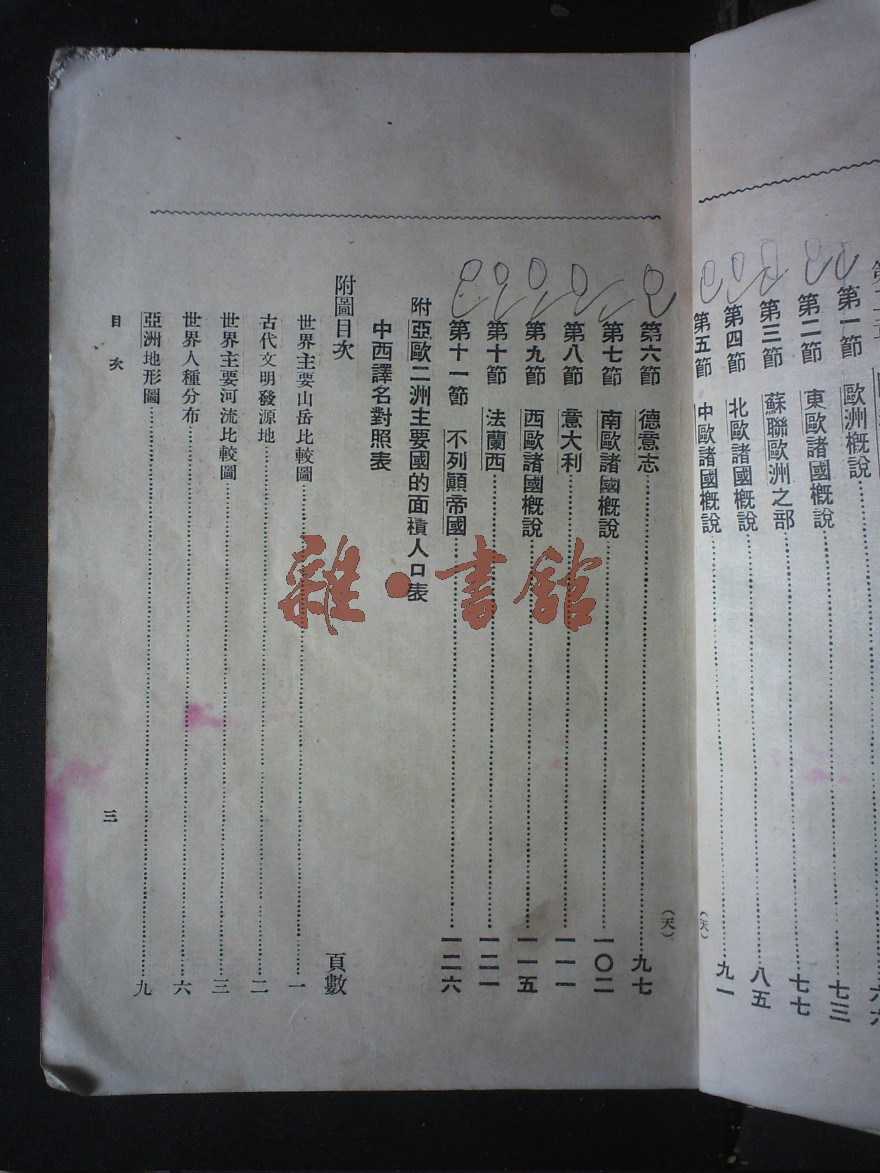 第一節　歐洲概說……七三
第二節　東歐諸國概說……七七
第三節　蘇聯歐洲之部……八五
第四節　北歐諸國概說
第五節　中歐諸國概說……九一
(天)
第六節　德意志……九七
(天)
第七節　南歐諸國概說……一〇二
第八節　意大利……一一一
第九節　西歐諸國概說……一一五
第十節　法蘭西……一二一
第十一節　不列顛帝國……一二六
附　亞歐二洲主要國的面積人口表
中西譯名對照表
附圖目次　頁數
世界主要山岳比較圖……一
古代文明發源地……二
世界主要河流比較圖……三
世界人種分布……六
亞洲地形圖……九
目次　三
雜·書館